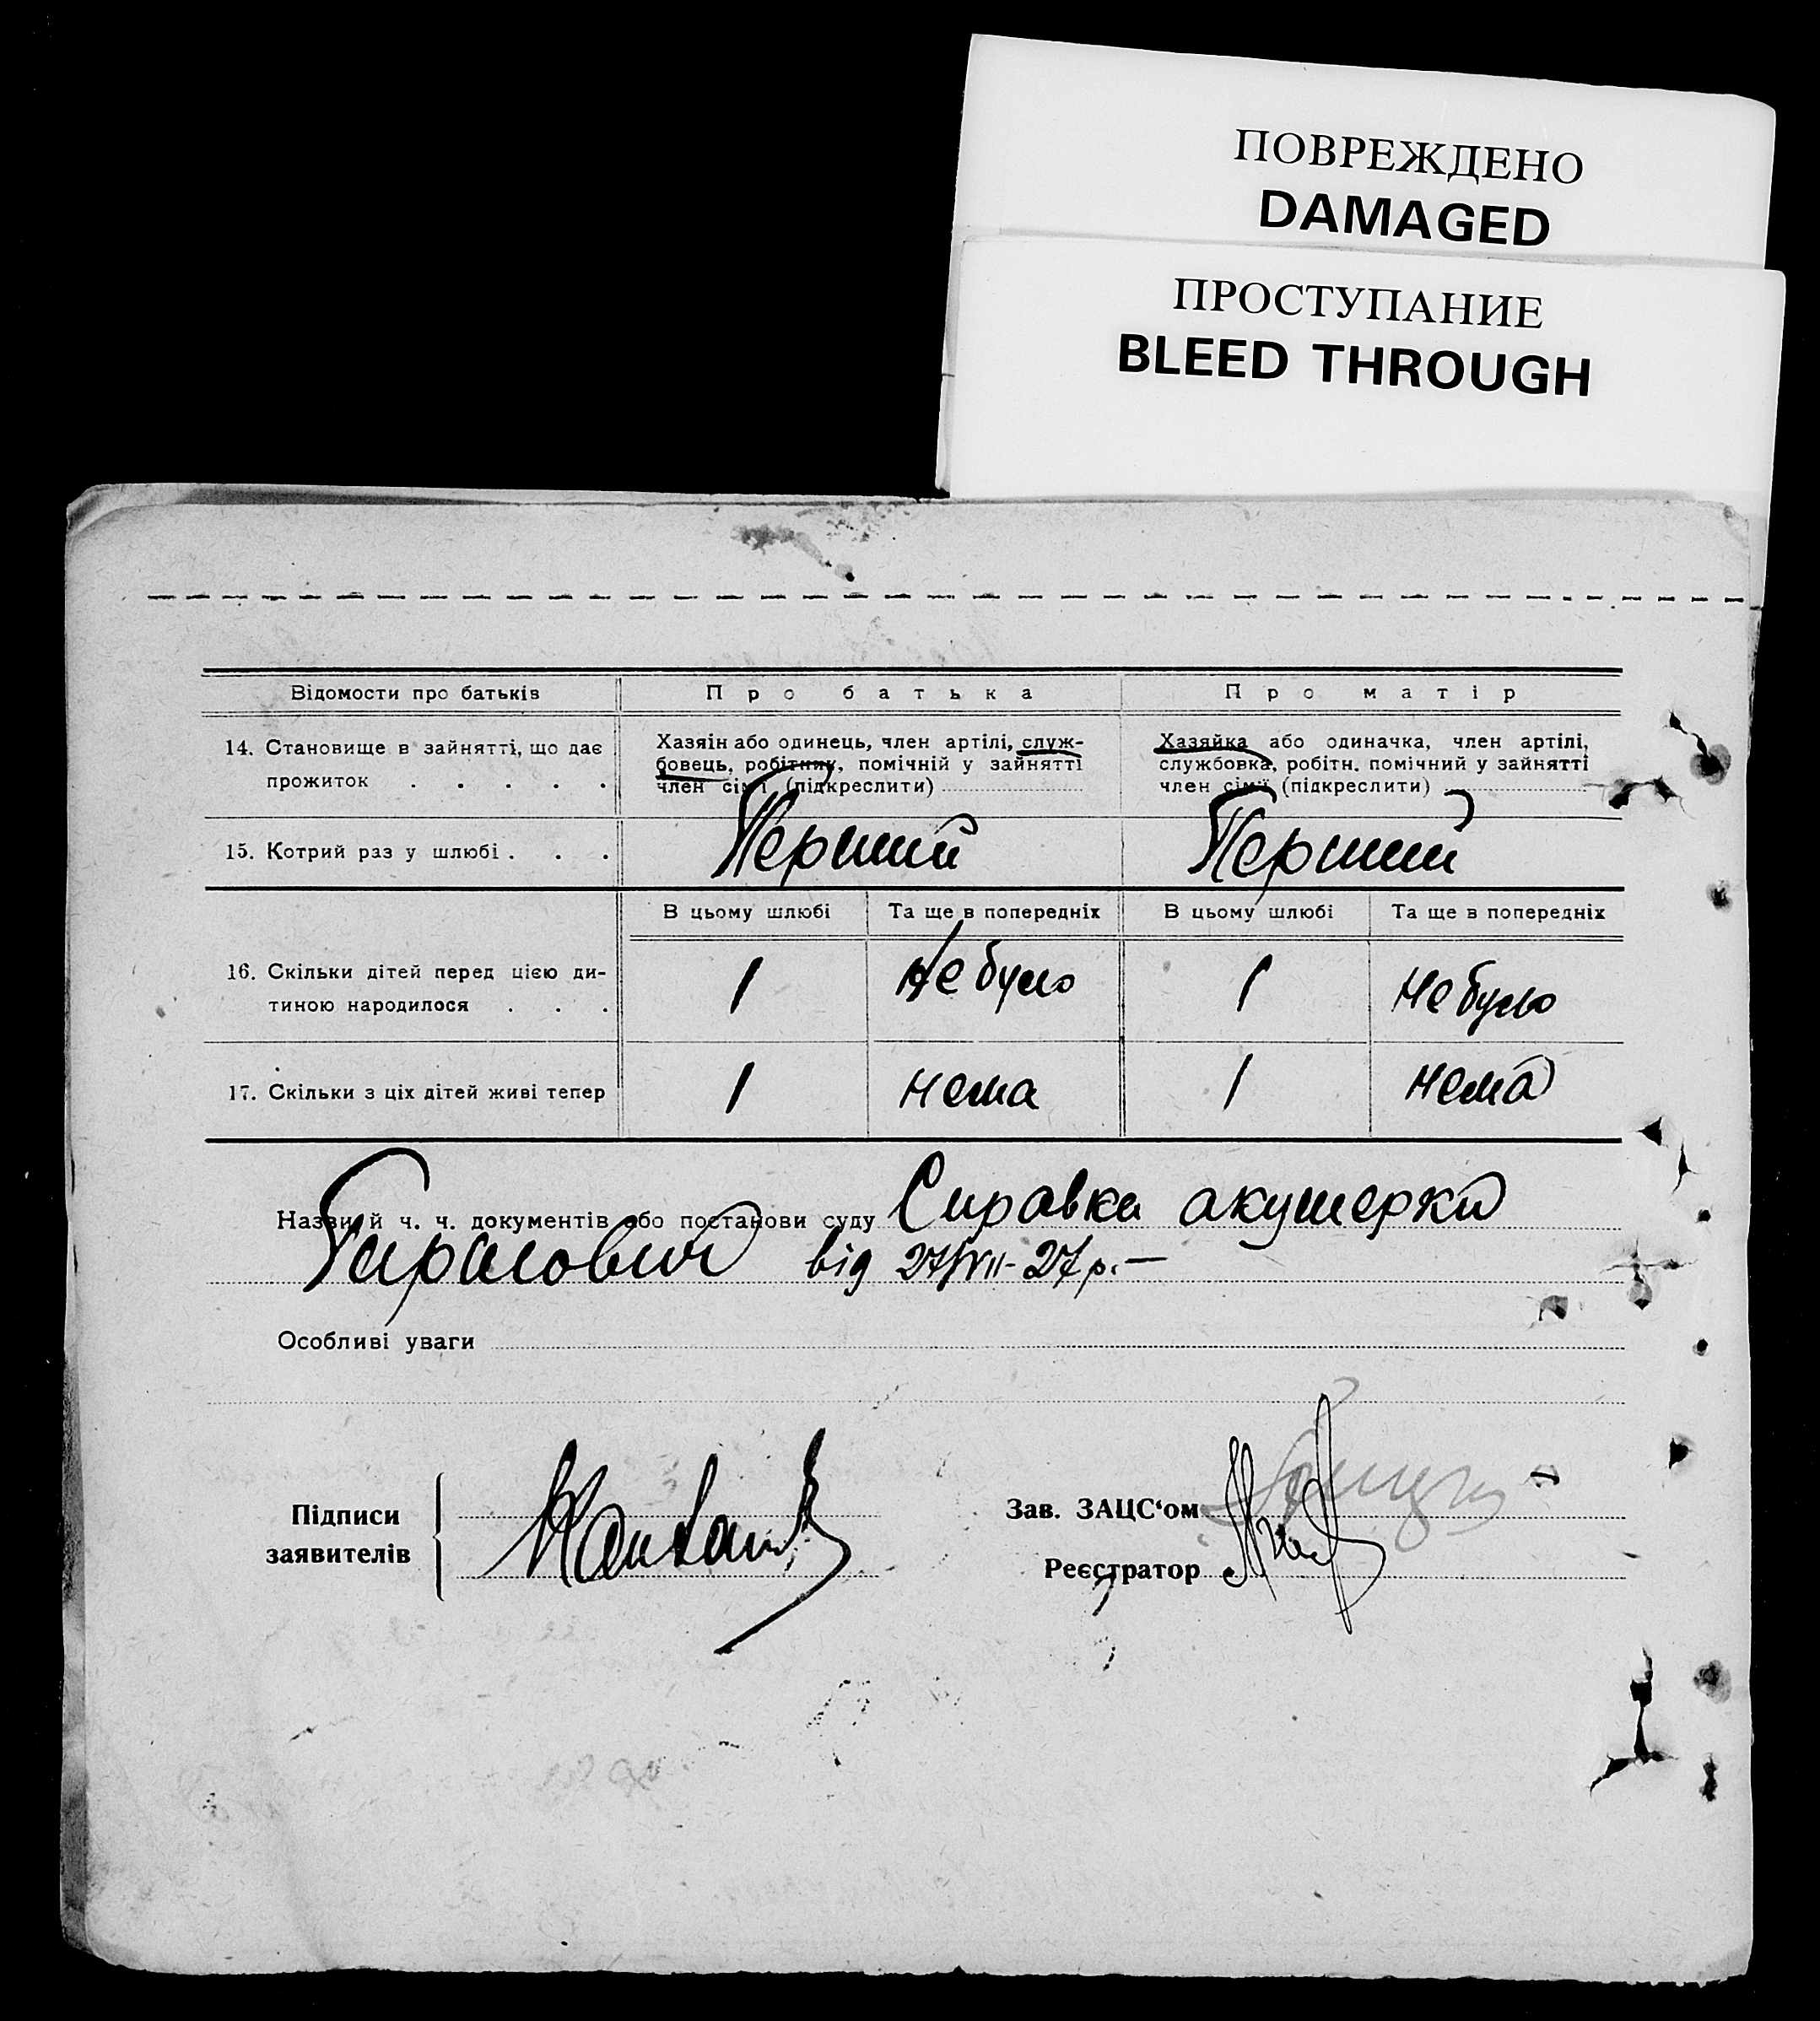 ПОВРЕЖДЕНО
DAMAGED
ПРОСТУПАНИЕ
BLEED THROUGH
Відомости про батьків
Про батька
Про матір
14. Становище в зайнятті, що дає
прожиток . . . . .
Хазяін або одинець, член артілі, служ-
бовець, робітник, помічній у зайнятті
член сім'ї (підкреслити)
Хазяйка або одиначка, член артілі,
службовка, робітн. помічний у зайнятті
член сім'ї (підкреслити)
15. Котрий раз у шлюбі . . .
Перший
Перший
В цьому шлюбі
Та ще в попередніх
В цьому шлюбі
Та ще в попередніх
16. Скільки дітей перед цією ди-
тиною народилося . . .
1
не було
1
не було
17. Скільки з ціх дітей живі тепер
1
нема
1
нема
Назви й ч. ч. документів або постанови суду Справка акушерки
від 27/VII-27 р. —
Особливі уваги
Підписи
заявителів
Зав. ЗАЦС‘ом
Реєстратор